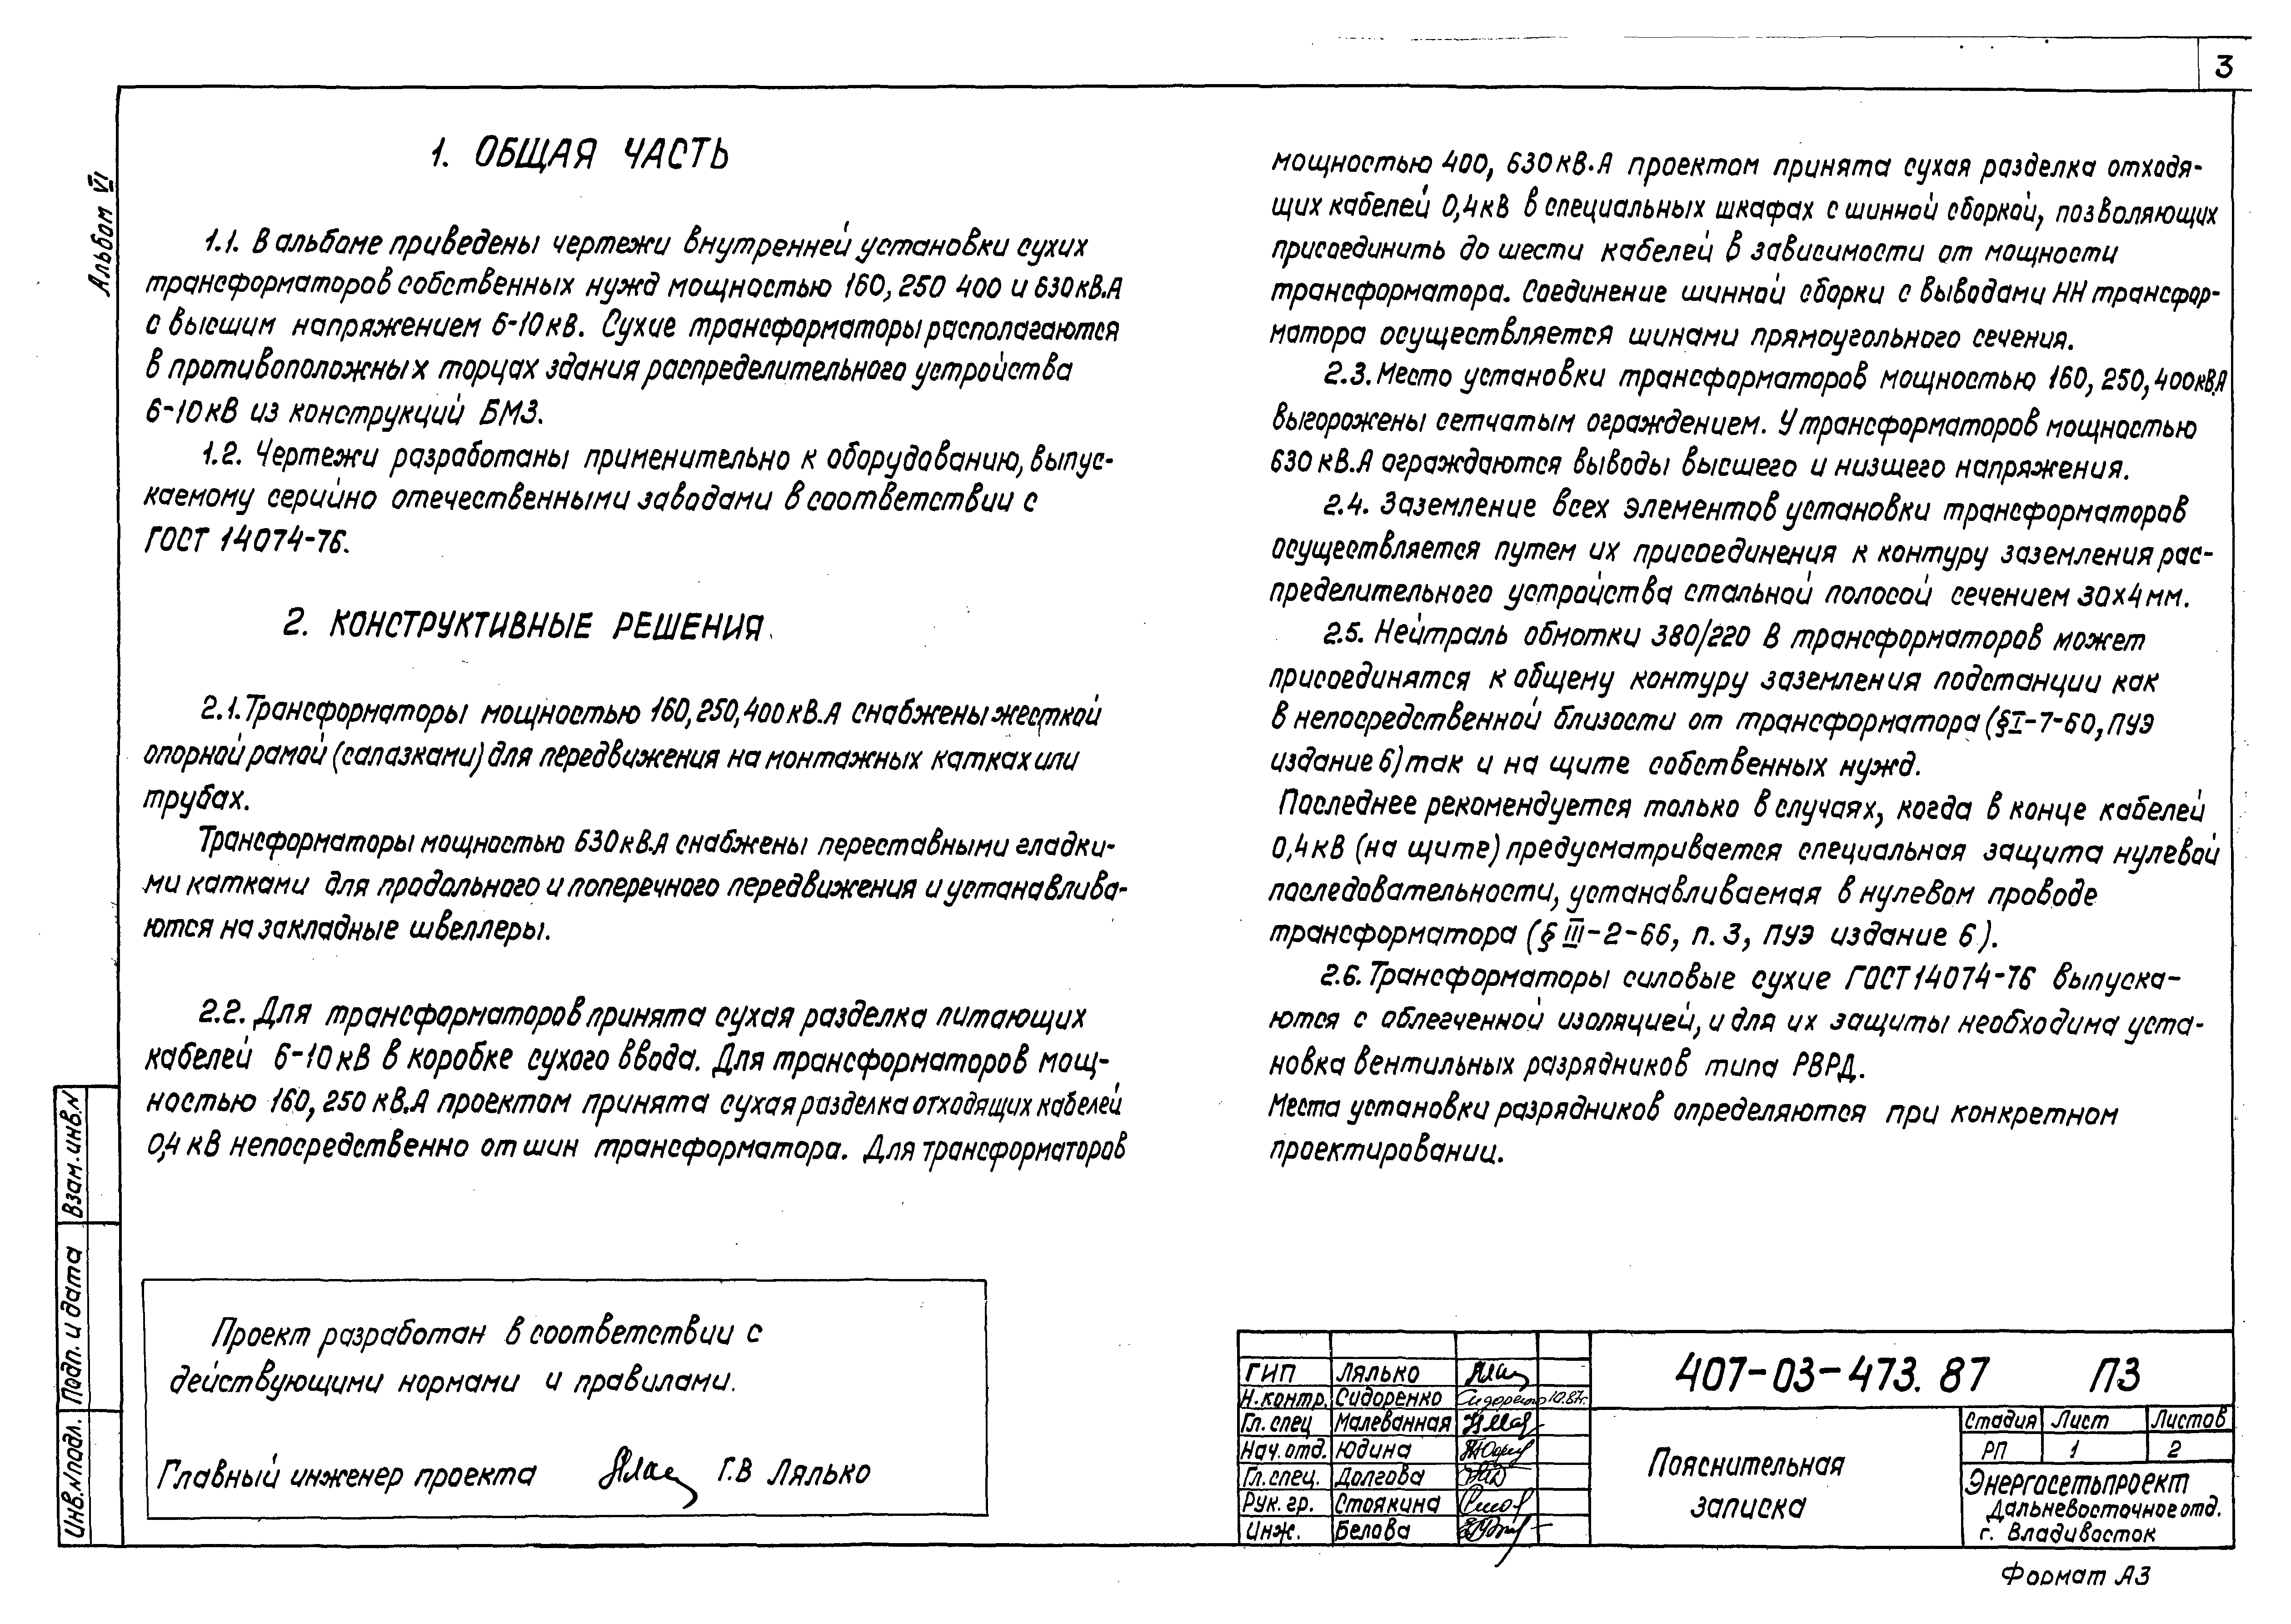 3
Альбом VI
1. ОБЩАЯ ЧАСТЬ
1.1. В альбоме приведены чертежи внутренней установки сухих
трансформаторов собственных нужд мощностью 160, 250 400 и 630 кВ.А
с высшим напряжением 6-10 кВ. Сухие трансформаторы располагаются
в противоположных торцах здания распределительного устройства
6-10 кВ из конструкций БМЗ.
1.2. Чертежи разработаны применительно к оборудованию, выпус-
каемому серийно отечественными заводами в соответствии с
ГОСТ 14074-76.
2. КОНСТРУКТИВНЫЕ РЕШЕНИЯ.
2.1. Трансформаторы мощностью 160, 250, 400 кВ.А снабжены жесткой
опорной рамой (салазками) для передвижения на монтажных катках или
трубах.
Трансформаторы мощностью 630 кВ.А снабжены переставными гладки-
ми катками для продольного и поперечного передвижения и устанавлива-
ются на закладные швеллеры.
2.2. Для трансформаторов принята сухая разделка питающих
кабелей 6-10 кВ в коробке сухого ввода. Для трансформаторов мощ-
ностью 160, 250 кВ.А проектом принята сухая разделка отходящих кабелей
0,4 кВ непосредственно от шин трансформатора. Для трансформаторов
мощностью 400, 630 кВ.А проектом принята сухая разделка отходя-
щих кабелей 0,4 кВ в специальных шкафах с шинной сборкой, позволяющих
присоединить до шести кабелей в зависимости от мощности
трансформатора. Соединение шинной сборки с выводами НН трансфор-
матора осуществляется шинами прямоугольного сечения.
2.3. Место установки трансформаторов мощностью 160, 250, 400 кВ.А
выгорожены сетчатым ограждением. У трансформаторов мощностью
630 кВ.А ограждаются выводы высшего и низшего напряжения.
2.4. Заземление всех элементов установки трансформаторов
осуществляется путем их присоединения к контуру заземления рас-
пределительного устройства стальной полосой сечением 30х4 мм.
2.5. Нейтраль обмотки 380/220 В трансформаторов может
присоединятся к общему контуру заземления подстанции как
в непосредственной близости от трансформатора (§I-7-60, ПУЭ
издание 6) так и на щите собственных нужд.
Последнее рекомендуется только в случаях, когда в конце кабелей
0,4 кВ (на щите) предусматривается специальная защита нулевой
последовательности, устанавливаемая в нулевом проводе
трансформатора (§ III-2-66, п. 3, ПУЭ издание 6).
2.6. Трансформаторы силовые сухие ГОСТ 14074-76 выпуска-
ются с облегченной изоляцией, и для их защиты необходима уста-
новка вентильных разрядников типа РВРД.
Места установки разрядников определяются при конкретном
проектировании.
Проект разработан в соответствии с
действующими нормами и правилами.
Главный инженер проекта Г.В Лялько
Взам. инв. N
Подп. и дата
Инв. N подл.
ГИП Лялько
Н. контр. Сидоренко Сидоренко 10.87г.
Гл. спец Малеванная
Нач. отд. Юдина
Гл. спец. Долгова
Рук. гр. Стоякина
Инж. Белова
407-03-473.87 ПЗ
Пояснительная
записка
Стадия Лист Листов
РП 1 2
Энергосетьпроект
Дальневосточное отд.
г. Владивосток
Формат А3